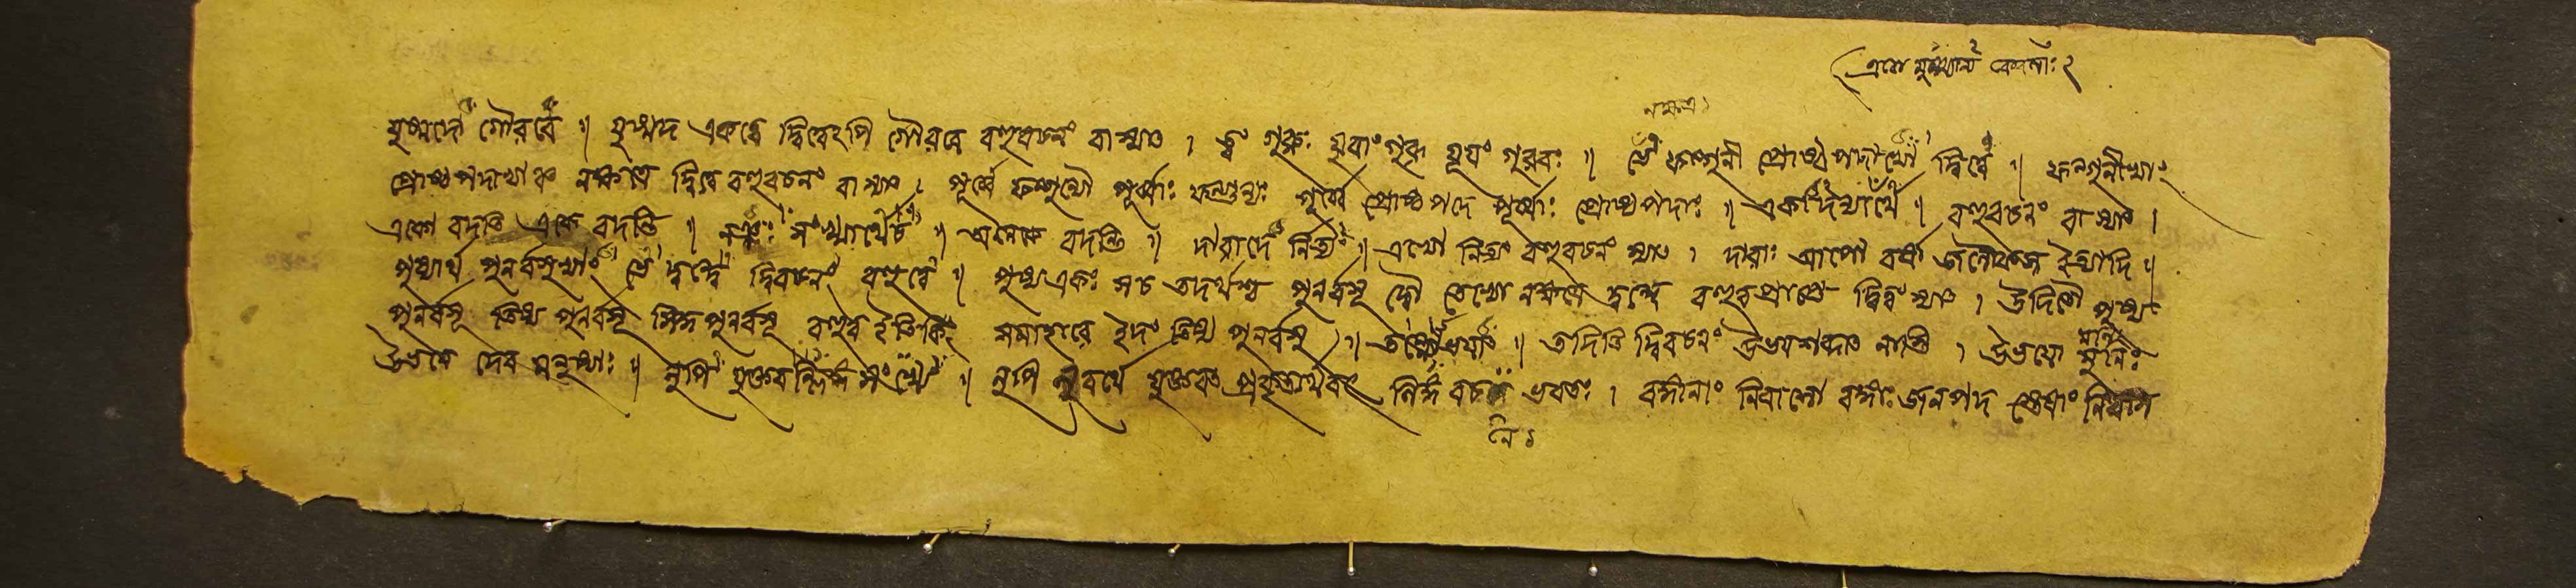 নক্ষত্র
যুষ্মদো গৌরবে ॥ যুষ্মদ একত্বে দ্বিত্বেঽপি গৌরবে বহুবচনং বা স্যাৎ । ত্বং গুরুঃ যুবাং গুরূ যূয়ং গুরবঃ ॥ ভে ফল্গুনী প্রোষ্ঠপদয়ো দ্বিত্বে ॥ ফল্গুনীভ্যাং
প্রোষ্ঠপদাভ্যাঞ্চ নক্ষত্রে দ্বিত্বে বহুবচনং বা স্যাৎ । পূর্ব্বে ফল্গুন্যৌ পূর্ব্বাঃ ফল্গুন্যঃ পূর্ব্বে প্রোষ্ঠপদে পূর্ব্বাঃ প্রোষ্ঠপদাঃ ॥ বহুবচনং বা স্যাৎ ।
একো বদতি একে বদন্তি ॥ অনেকে বদন্তি ॥ দারাদে র্নিত্যং ॥ এভ্যো নিত্যং বহুবচনং স্যাৎ । দারাঃ আপো বর্ষা জলৌকস ইত্যাদি ॥
পুষ্যার্থ পুনর্বসুভ্যাং ভে দ্বন্দ্বে দ্বিবচনং বহুত্বে ॥ পুষ্য একঃ স চ তদর্থশ্চ পুনর্বসূ দ্বৌ তেভ্যো নক্ষত্রে দ্বন্দ্বে বহুত্বপ্রাপ্তে দ্বিত্বং স্যাৎ । উদিতৌ পুষ্য
পুনর্বসূ তিষ্য পুনর্বসূ সিদ্ধ্য পুনর্বসূ বহুত্ব ইতি কিং সমাহারে ইদং তিষ্য পুনর্বসু ॥ তদিতি দ্বিবচনং উভয়শব্দাৎ নাস্তি । উভয়ো মুনিঃ
উভয়ে দেব মনুষ্যাঃ ॥ লুপি যুক্তবল্লিঙ্গ সংখ্যে ॥ লুপি লুবর্থে যুক্তবৎ প্রকৃত্যর্থবৎ লিঙ্গ বচনে ভবতঃ । বঙ্গানাং নিবাসো বঙ্গাঃ জনপদ স্তেষাং নিবাস